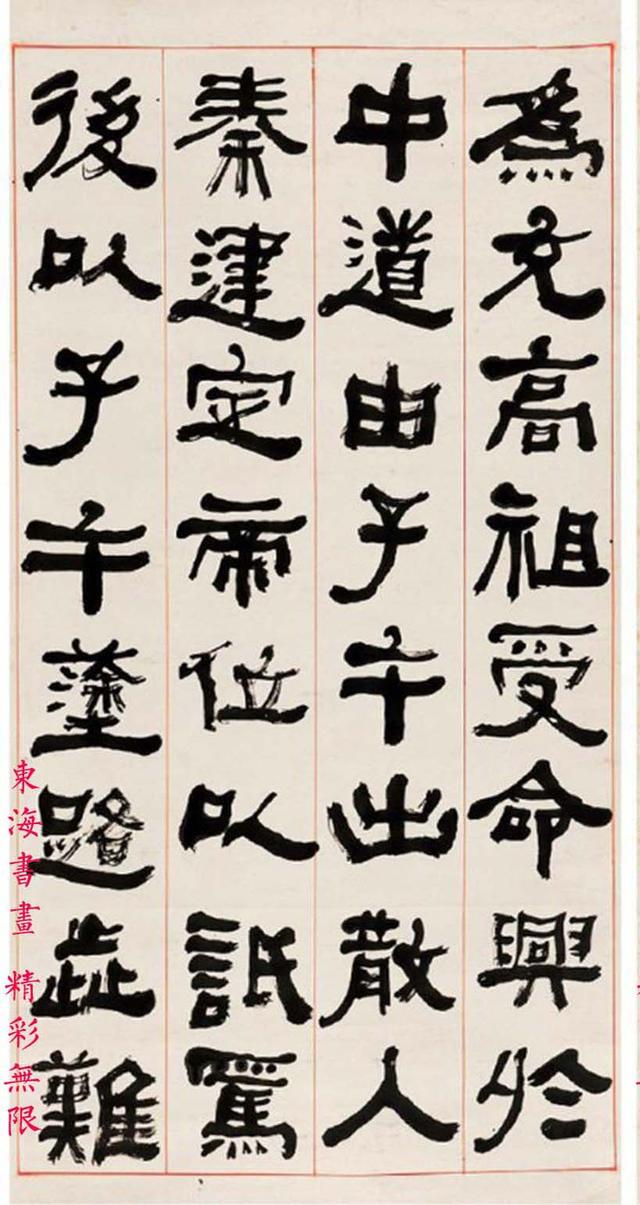 為充高祖受命興於
中道由子午出散入
秦建定帝位以詆焉
後以子午塗路歮難
東海書畫 精彩無限